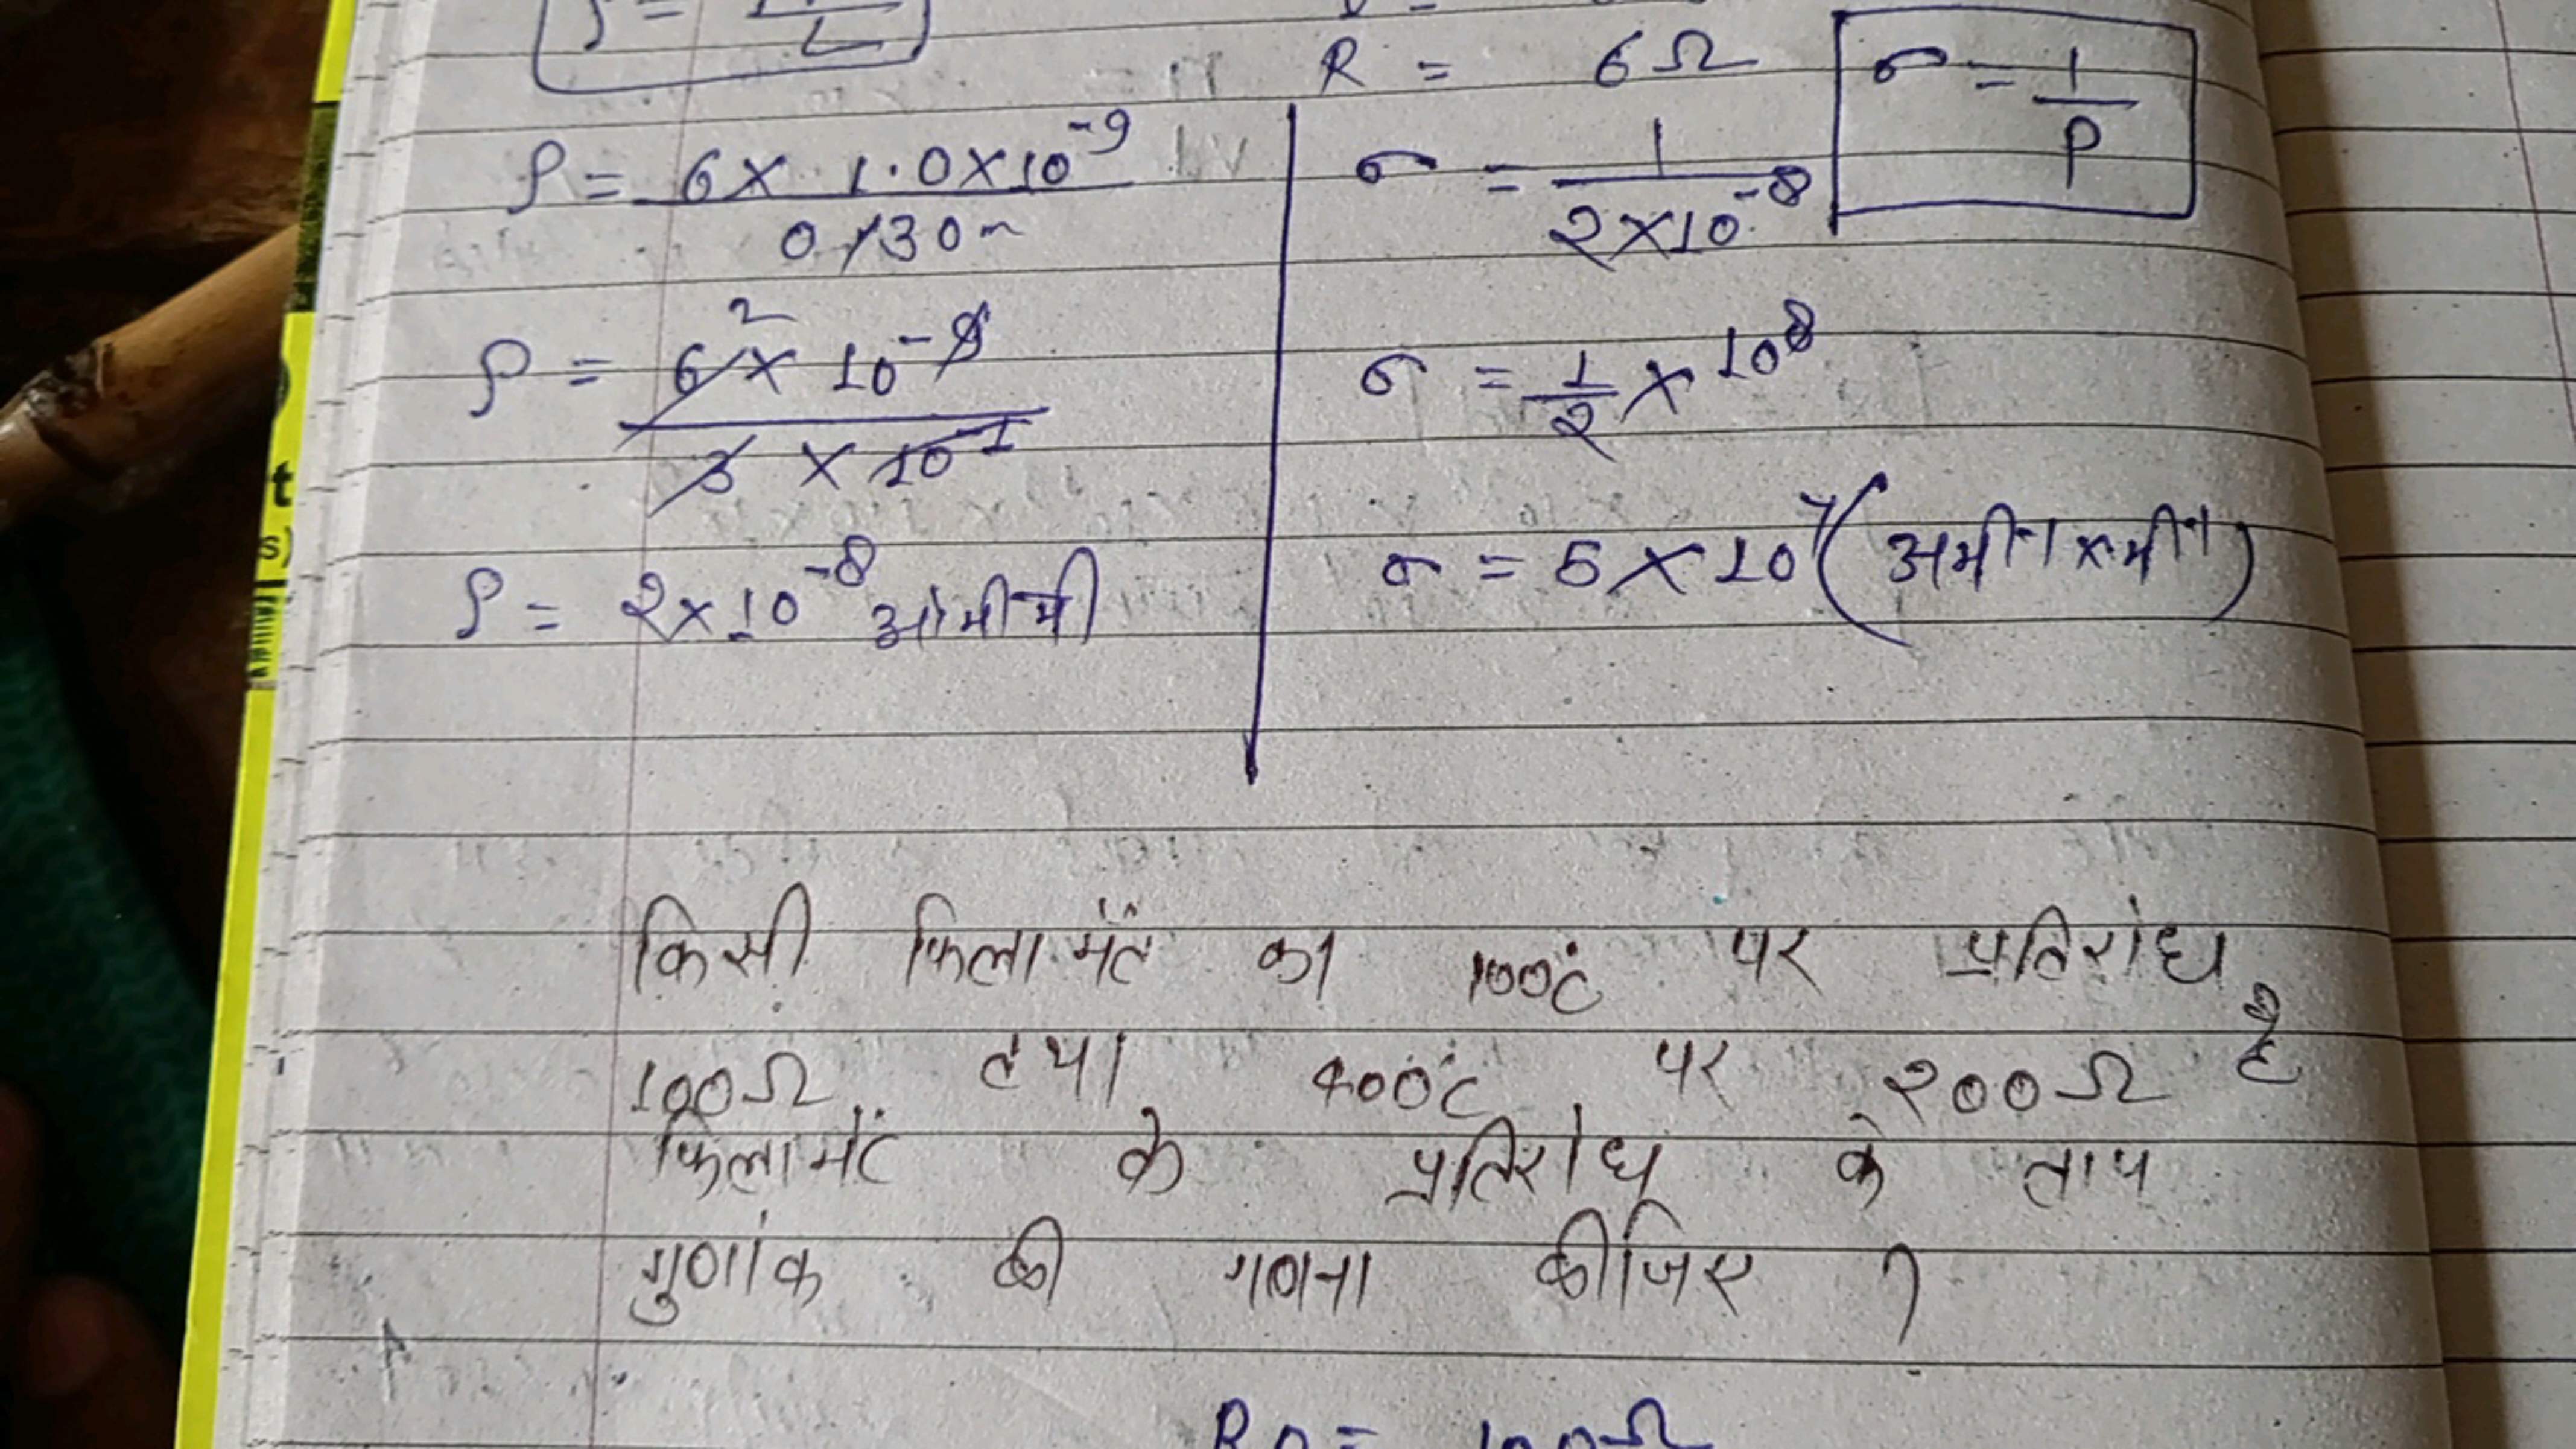 R = 6Ω
σ = 1/ρ
ρ = 6 × 1.0 × 10⁻⁹ / 0.30m
ρ = 6 × 10⁻⁹ / 3 × 10⁻¹
2
ρ = 2×10⁻⁸ ओमीमी
σ = 1 / 2×10⁻⁸
σ = 1/2 × 10⁸
σ = 5 × 10⁷ (अमी⁻¹ × मी⁻¹)
किसी फिलामेंट का 100°C पर प्रतिरोध
100Ω तथा 400°C पर 200Ω है
फिलामेंट के प्रतिरोध के ताप
गुणांक की गणना कीजिए ?
= 100Ω